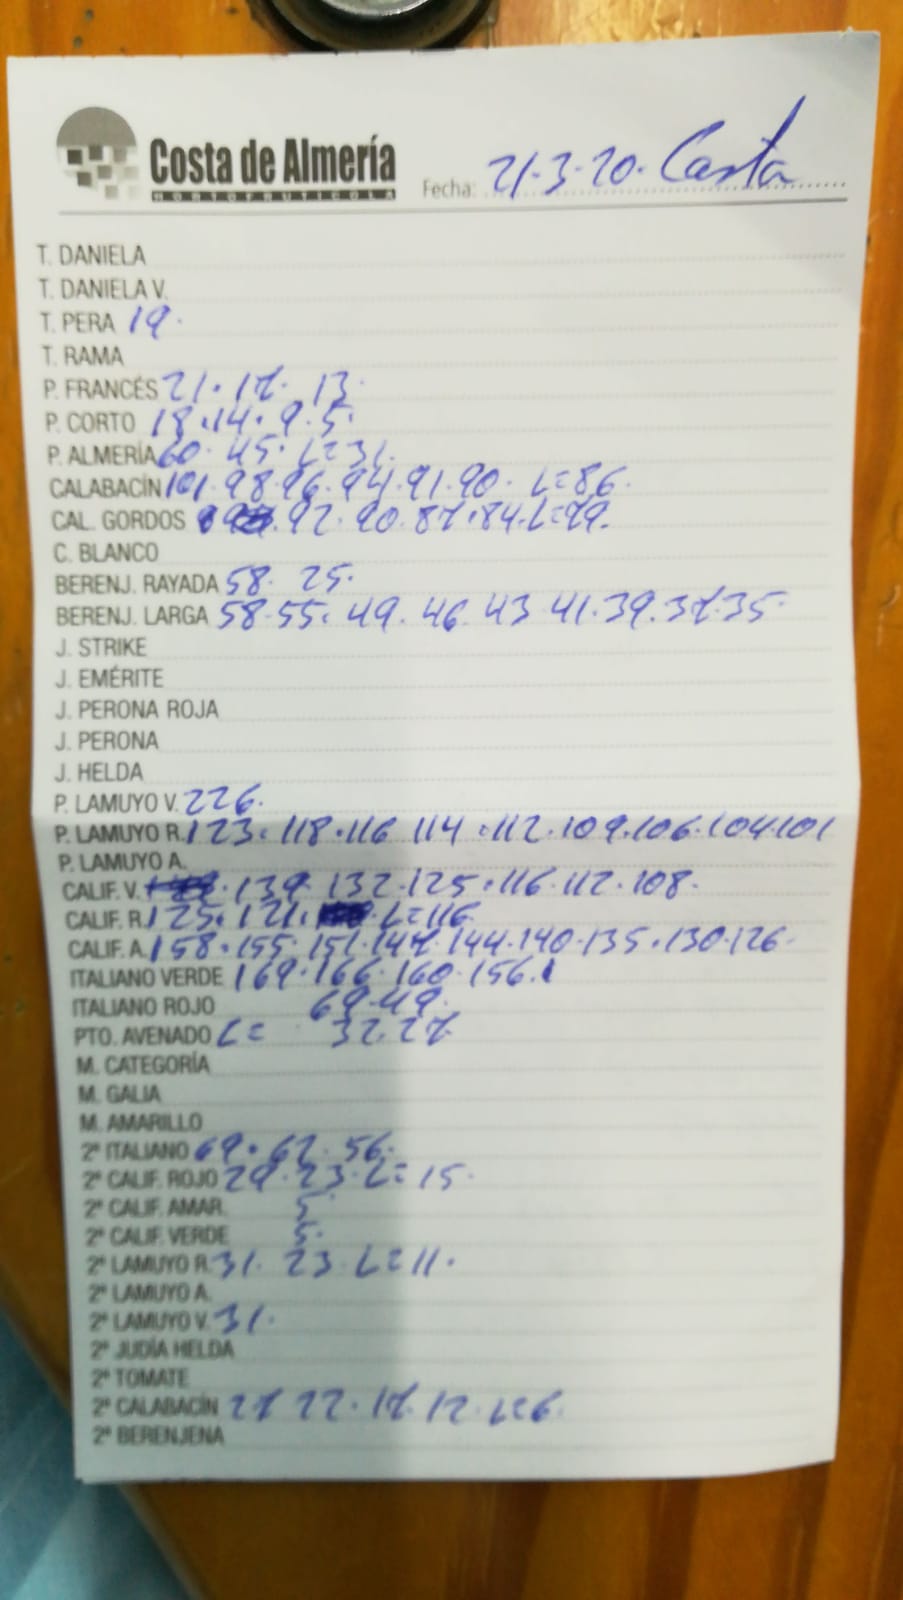 Costa de Almería
HORTOFRUTICOLA
Fecha: 21-3-20. Costa
T. DANIELA
T. DANIELA V.
T. PERA 19.
T. RAMA
P. FRANCÉS 21. 17. 13.
P. CORTO 18.14. 9.5.
P. ALMERÍA 60. 45. L=31.
CALABACÍN 101.98.96.94.91.90. L=86.
CAL. GORDOS .92.90.87.84.L=79.
C. BLANCO
BERENJ. RAYADA 58. 25.
BERENJ. LARGA 58.55. 49. 46. 43 41.39.37.35.
J. STRIKE
J. EMÉRITE
J. PERONA ROJA
J. PERONA
J. HELDA
P. LAMUYO V. 226.
P. LAMUYO R. 123.118.116 114.112.109.106.104.101
P. LAMUYO A.
CALIF. V. .139 132.125.116.112.108.
CALIF. R. 125.121. L=116
CALIF. A. 158.155.151.147.144.140.135.130.126.
ITALIANO VERDE 169.166.160.156.
ITALIANO ROJO 69.49.
PTO. AVENADO L= 32.27
M. CATEGORÍA
M. GALIA
M. AMARILLO
2ª ITALIANO 69.62.56.
2ª CALIF. ROJO 29.23.L=15.
2ª CALIF. AMAR. 5.
2ª CALIF. VERDE 5.
2ª LAMUYO R. 31. 23.L=11.
2ª LAMUYO A.
2ª LAMUYO V. 31.
2ª JUDÍA HELDA
2ª TOMATE
2ª CALABACÍN 27 22.17.12.L=6.
2ª BERENJENA